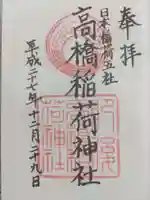 奉拝
日本稲荷五社
高橋稲荷神社
平成二十七年十二月二十九日